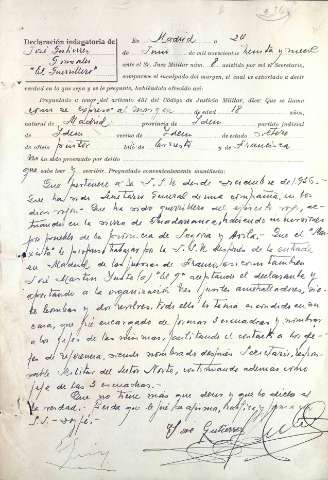 Declaración indagatoria de
José Gutierrez
Gonzalez
"El Guerrillero"
En Madrid a 20
de Junio de mil novecientos treinta y nueve
ante el Sr. Juez Militar núm. 8 asistido por mí el Secretario,
comparece el inculpado del margen, el cual es exhortado a decir
verdad en lo que sepa y se le pregunte, habiéndolo ofrecido así.
Preguntado a tenor del artículo 457 del Código de Justicia Militar, dice: Que se llama
como se expresa al margen de edad 18 años,
natural de Madrid provincia de Idem partido judicial
de Idem vecino de Idem de estado soltero
de oficio pintor hijo de Ernesto y de Francisca
no ha sido procesado por delito
que sabe leer y escribir. Preguntado convenientemente manifiesta:
Que pertenece a la J.S.U. desde Diciembre de 1936.
Que ha sido Secretario General de una compañia, en
roja. Que ha sido guerrillero del ejercito rojo, ac-
tuando en la sierra de Guadarrama, haciendo incursiones
por pueblos de la provincia de Segovia y Avila. Que el
le propuso trabajar por la J.S.U. después de la entrada
en Madrid de las tropas de Franco, así como tambien
José Martin aceptando el declarante y
aportando a la organización tres pistolas ametralladoras, siete
bombas y dos revolvers, todo ello lo tenia escondido en su
casa, que fué encargado de formar 3 escuadras y nombrar
a los jefes de las mismas, facilitando el contacto a los de-
siendo nombrado despues Secretario, respon-
sable Militar del Sector Norte, continuando ademas como
jefe de las 3 escuadras.
Que no tiene mas que decir y que lo dicho es
la verdad. Leida que le fué se afirma, ratifica y firma con
S.S. doy fé.
José Gutierrez